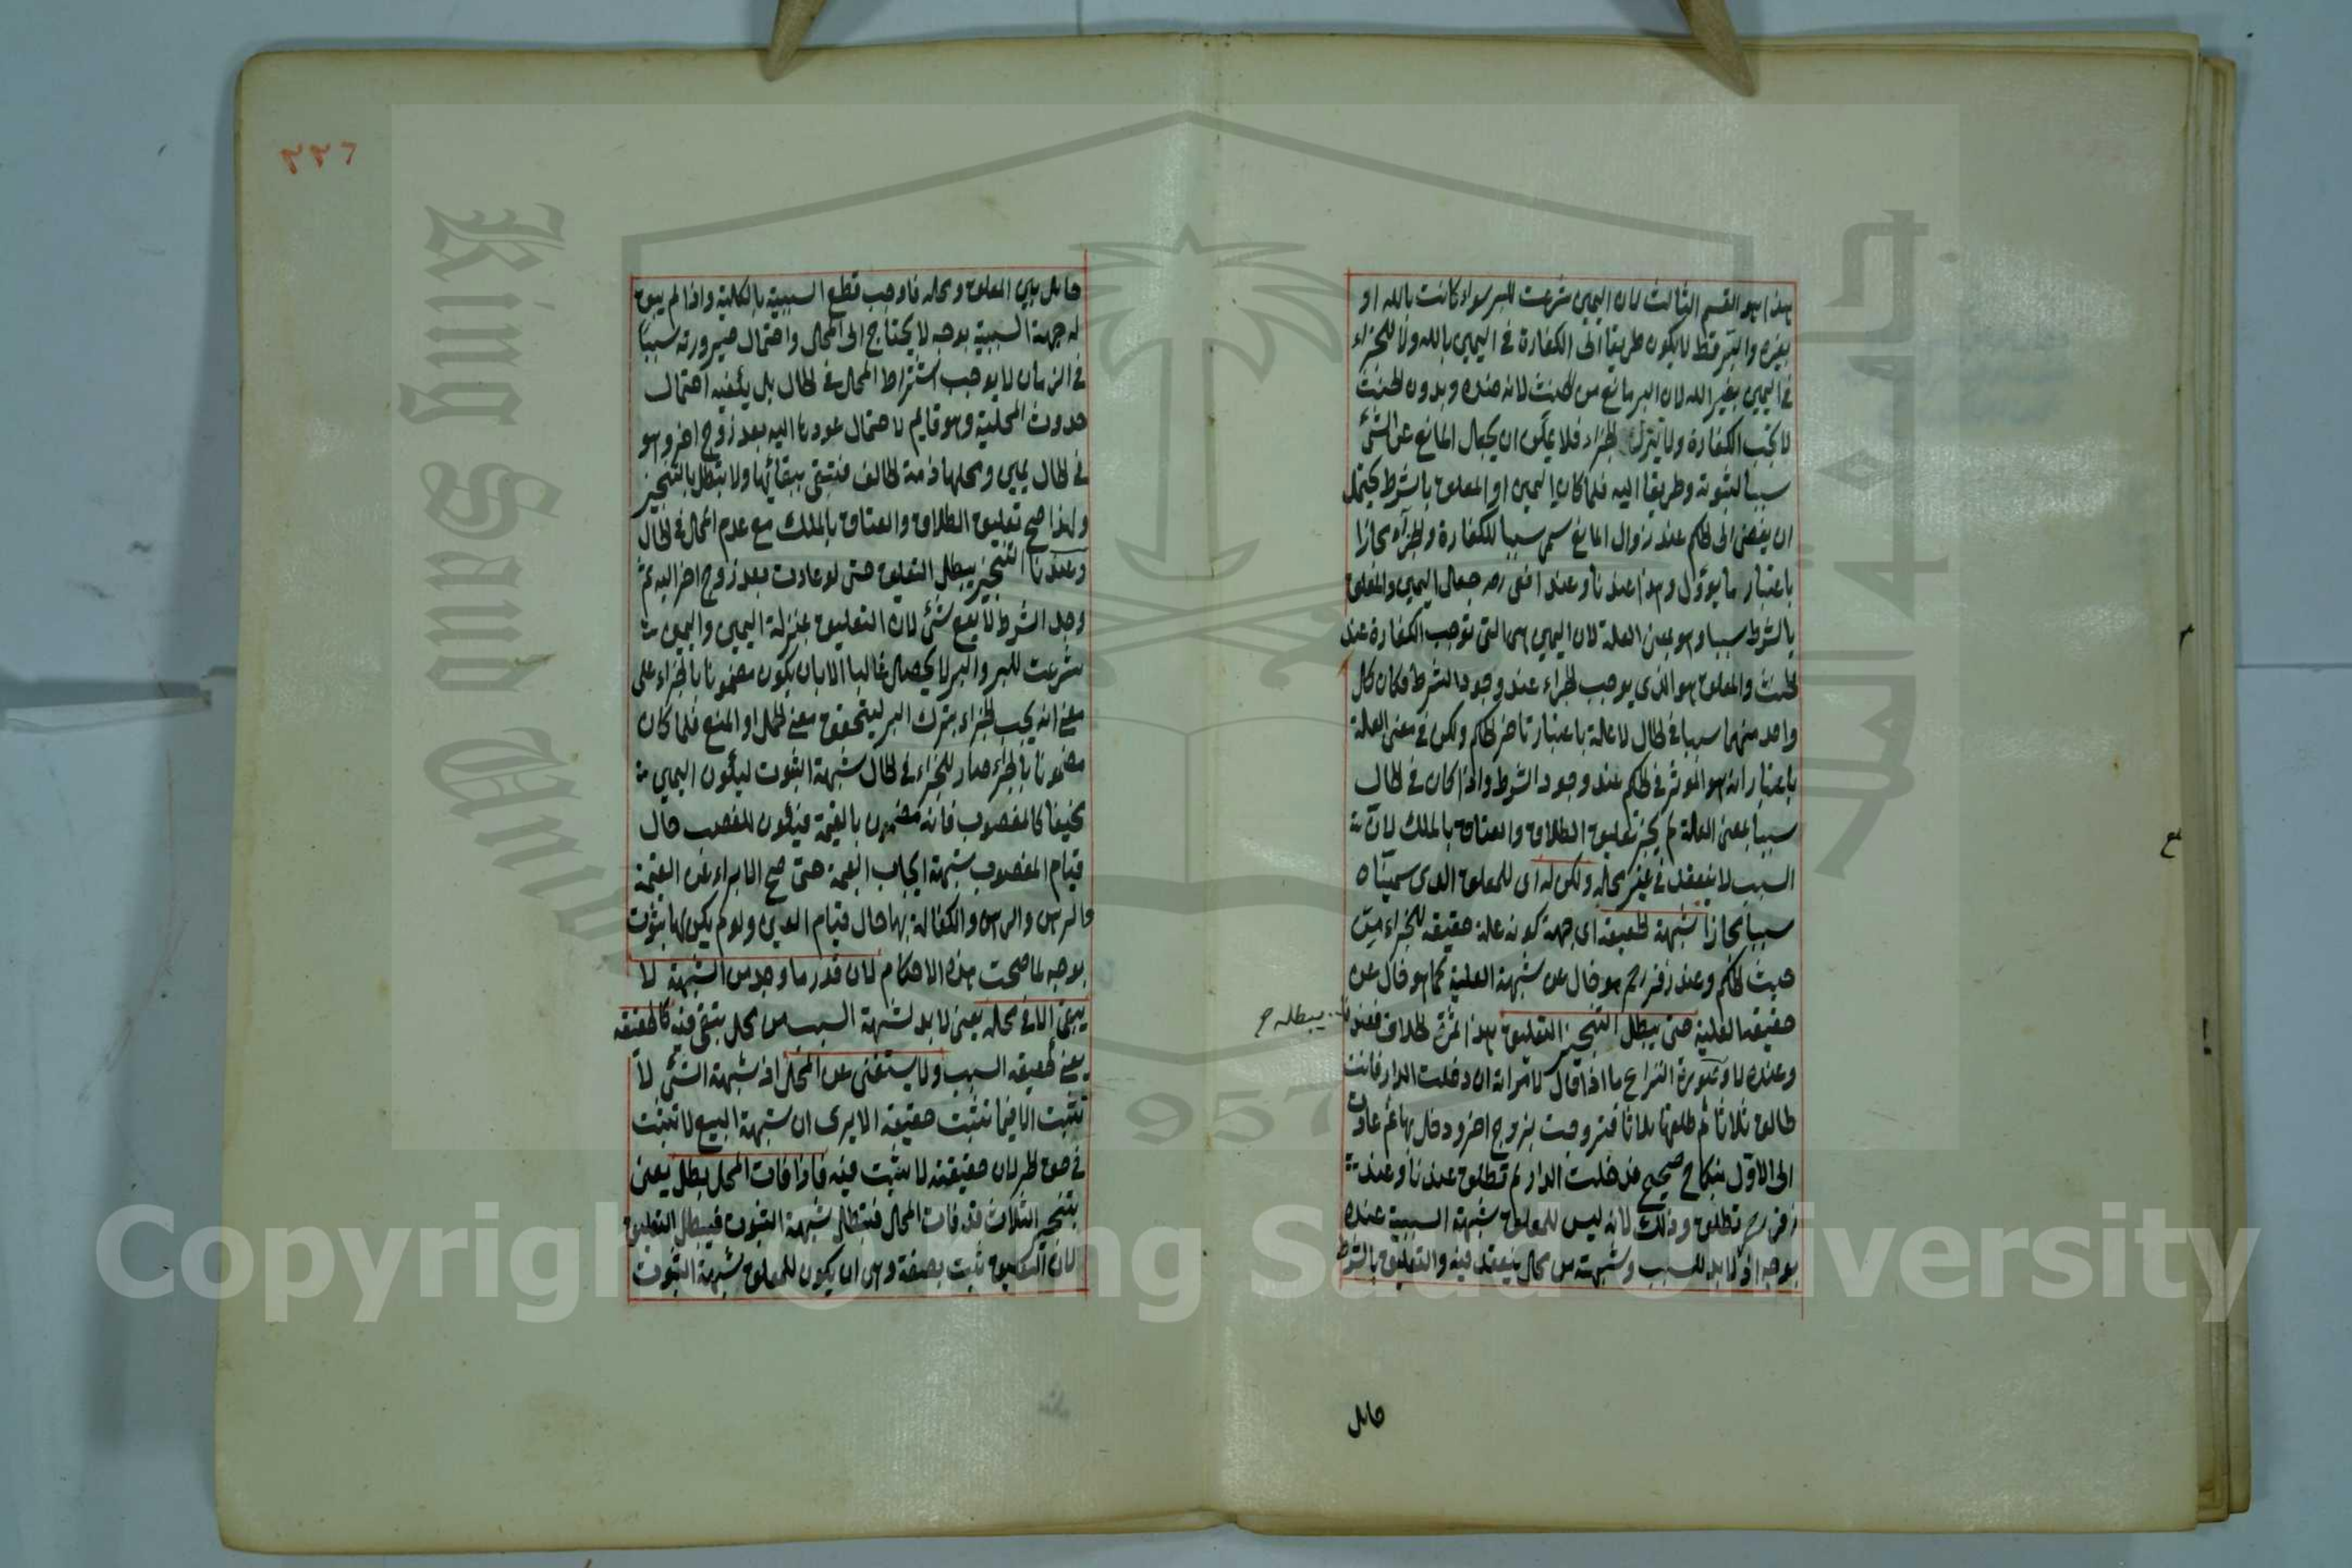 هذا هو القسم الثالث لان اليمين شرعت للبر سواء كانت بالله او
بغيره والبر قط لا يكون طريقا الى الكفارة في اليمين بالله ولا للجزاء
في اليمين بغير الله لان البر مانع من الحنث لانه ضده وبدون الحنث
لا تجب الكفارة ولا ينزل الجزاء فلا يمكن ان يجعل المانع عن الشئ
سببا لثبوته وطريقا اليه فلما كان اليمين او المعلق بالشرط يحتمل
ان يفضى الى الحكم عند زوال المانع سمى سببا للكفارة والجزاء مجازا
باعتبار ما يؤول وهذا عندنا وعند الشافعى رحمه جعل اليمين والمعلق
بالشرط سببا وهو بمعنى العلة لان اليمين هى التى توجب الكفارة عند
الحنث والمعلق هو الذى يوجب الجزاء عند وجود الشرط فكان كل
واحد منهما سببا في الحال لا علة باعتبار تاخر الحكم ولكن في معنى العلة
باعتبار انه هو المؤثر في الحكم عند وجود الشرط واذا كان في الحال
سببا بمعنى العلة لم يجز تعليق الطلاق والعتاق بالملك لان
السبب لا ينعقد في غير محله ولكن له اى للمعلق الذى سميناه
سببا مجازا شبهة الحقيقة اى جهة كونه علة حقيقة للجزاء من
حيث الحكم وعند زفر رحم هو خال عن شبهة العلية كما هو خال عن
حقيقة العلية حتى يبطل التنجيز التعليق هذا ثمرة الخلاف فعندنا
يبطله ح
وعنده لا وصورة النزاع ما اذا قال لامراته ان دخلت الدار فانت
طالق ثلاثا ثم طلقها ثلاثا فتزوجت بزوج اخر ودخل بها ثم عادت
الى الاول بنكاح صحيح فدخلت الدار لم تطلق عندنا وعند
زفر رح تطلق وذلك لانه ليس للمعلق شبهة السببية عنده
بوجه اذ لا بد للسبب وشبهته من محل ينعقد فيه والتعليق بالشرط
حائل
٢٢٦
حائل بين المعلق ومحله فاوجب قطع السببية بالكلية واذا لم يبق
له جهة السببية بوجه لا يحتاج الى المحل واحتمال صيرورته سببا
في الزمان لا يوجب اشتراط المحل في الحال بل يكفيه احتمال
حدوث المحلية وهو قايم لاحتمال عودها اليه بعد زوج اخر وهو
في الحال يمين ومحلها ذمة الحالف فتبقى ببقائها ولا يبطل بالتنجيز
ولهذا صح تعليق الطلاق والعتاق بالملك مع عدم المحل في الحال
وعندنا التنجيز يبطل التعليق حتى لو عادت بعد زوج اخر اليه ثم
وجد الشرط لا يقع شئ لان التعليق بمنزلة اليمين واليمين
شرعت للبر والبر لا يحصل غالبا الا بان يكون مضمونا بالجزاء على
معنى انه يجب الجزاء بترك البر ليتحقق معنى الحمل او المنع فلما كان
مضمونا بالجزاء صار للجزاء في الحال شبهة الثبوت ليكون اليمين
مخيفا كالمغصوب فانه مضمون بالقيمة فيكون للغصب حال
قيام المغصوب شبهة ايجاب القيمة حتى صح الابراء عن القيمة
والرهن والكفالة بها حال قيام العين ولو لم يكن لها ثبوت
بوجه لما صحت هذه الاحكام لان قدر ما وجد من الشبهة لا
يبقى الا في محله يعنى لا بد لشبهة السبب من محل تبقى فيه كالحقيقة
يعنى كحقيقة السبب ولا يستغنى عن المحل اذ شبهة الشئ لا
تثبت الا فيما تثبت حقيقته الا يرى ان شبهة البيع لا تثبت
في حق الحر لان حقيقته لا تثبت فيه فاذا فات المحل بطل يعنى
بتنجيز الثلاث قد فات المحل فتبطل شبهة الثبوت فيبطل التعليق
لان التعليق ثبت بصفة وهى ان يكون للمعلق شبهة الثبوت
King Saud University
957
Copyright © King Saud University